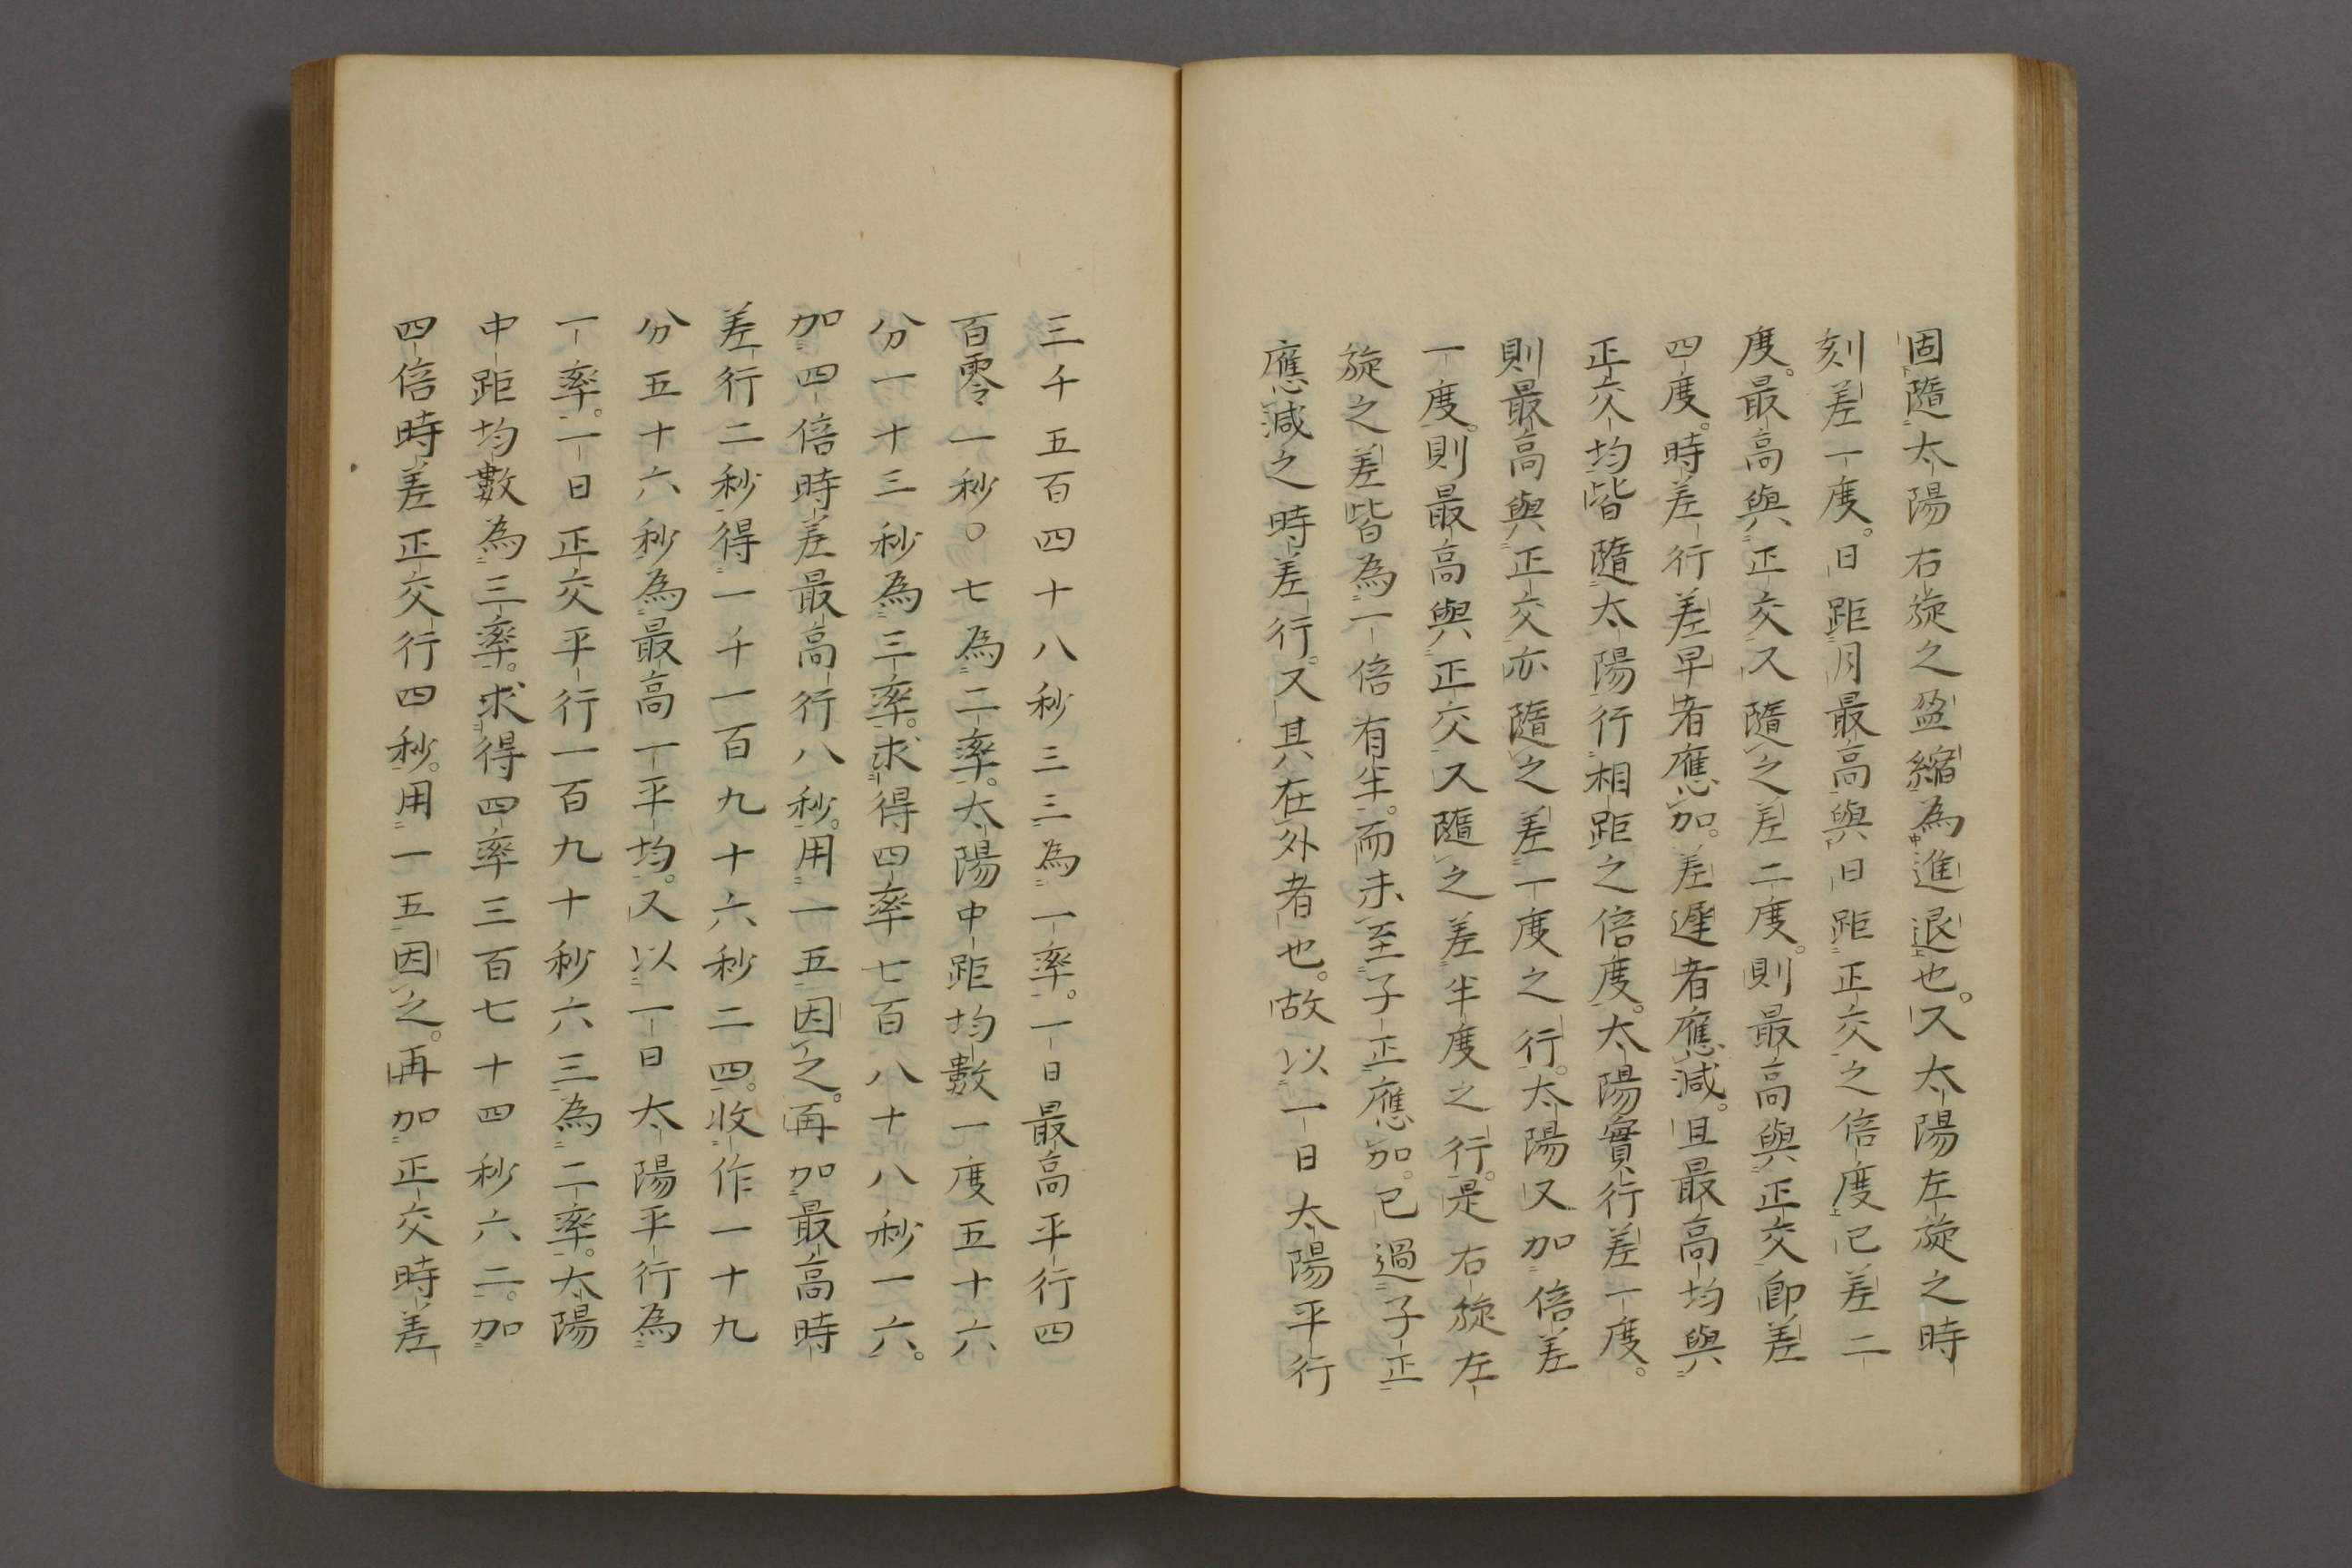 固隨太陽右旋之盈縮為進退也。又太陽左旋之時
刻差一度。日距月最高與日距正交之倍度已差二
度。最高與正交又隨之差二度。則最高與正交即差
四度。時差行差早者應加。差遲者應減。且最高均與
正交均皆隨太陽行相距之倍度。太陽實行差一度。
則最高與正交亦隨之差一度之行。太陽又加倍差
一度。則最高與正交又隨之差半度之行。是右旋左
旋之差皆為一倍有半。而未至子正應加。已過子正
應減之時差行。又其在外者也。故以一日太陽平行
三千五百四十八秒三三為一率。一日最高平行四
百零一秒〇七為二率。太陽中距均數一度五十六
分一十三秒為三率。求得四率七百八十八秒一六。
加四倍時差最高行八秒。用一五因之。再加最高時
差行二秒得一千一百九十六秒二四。收作一十九
分五十六秒為最高一平均。又以一日太陽平行為
一率。一日正交平行一百九十秒六三為二率。太陽
中距均數為三率。求得四率三百七十四秒六二。加
四倍時差正交行四秒。用一五因之。再加正交時差